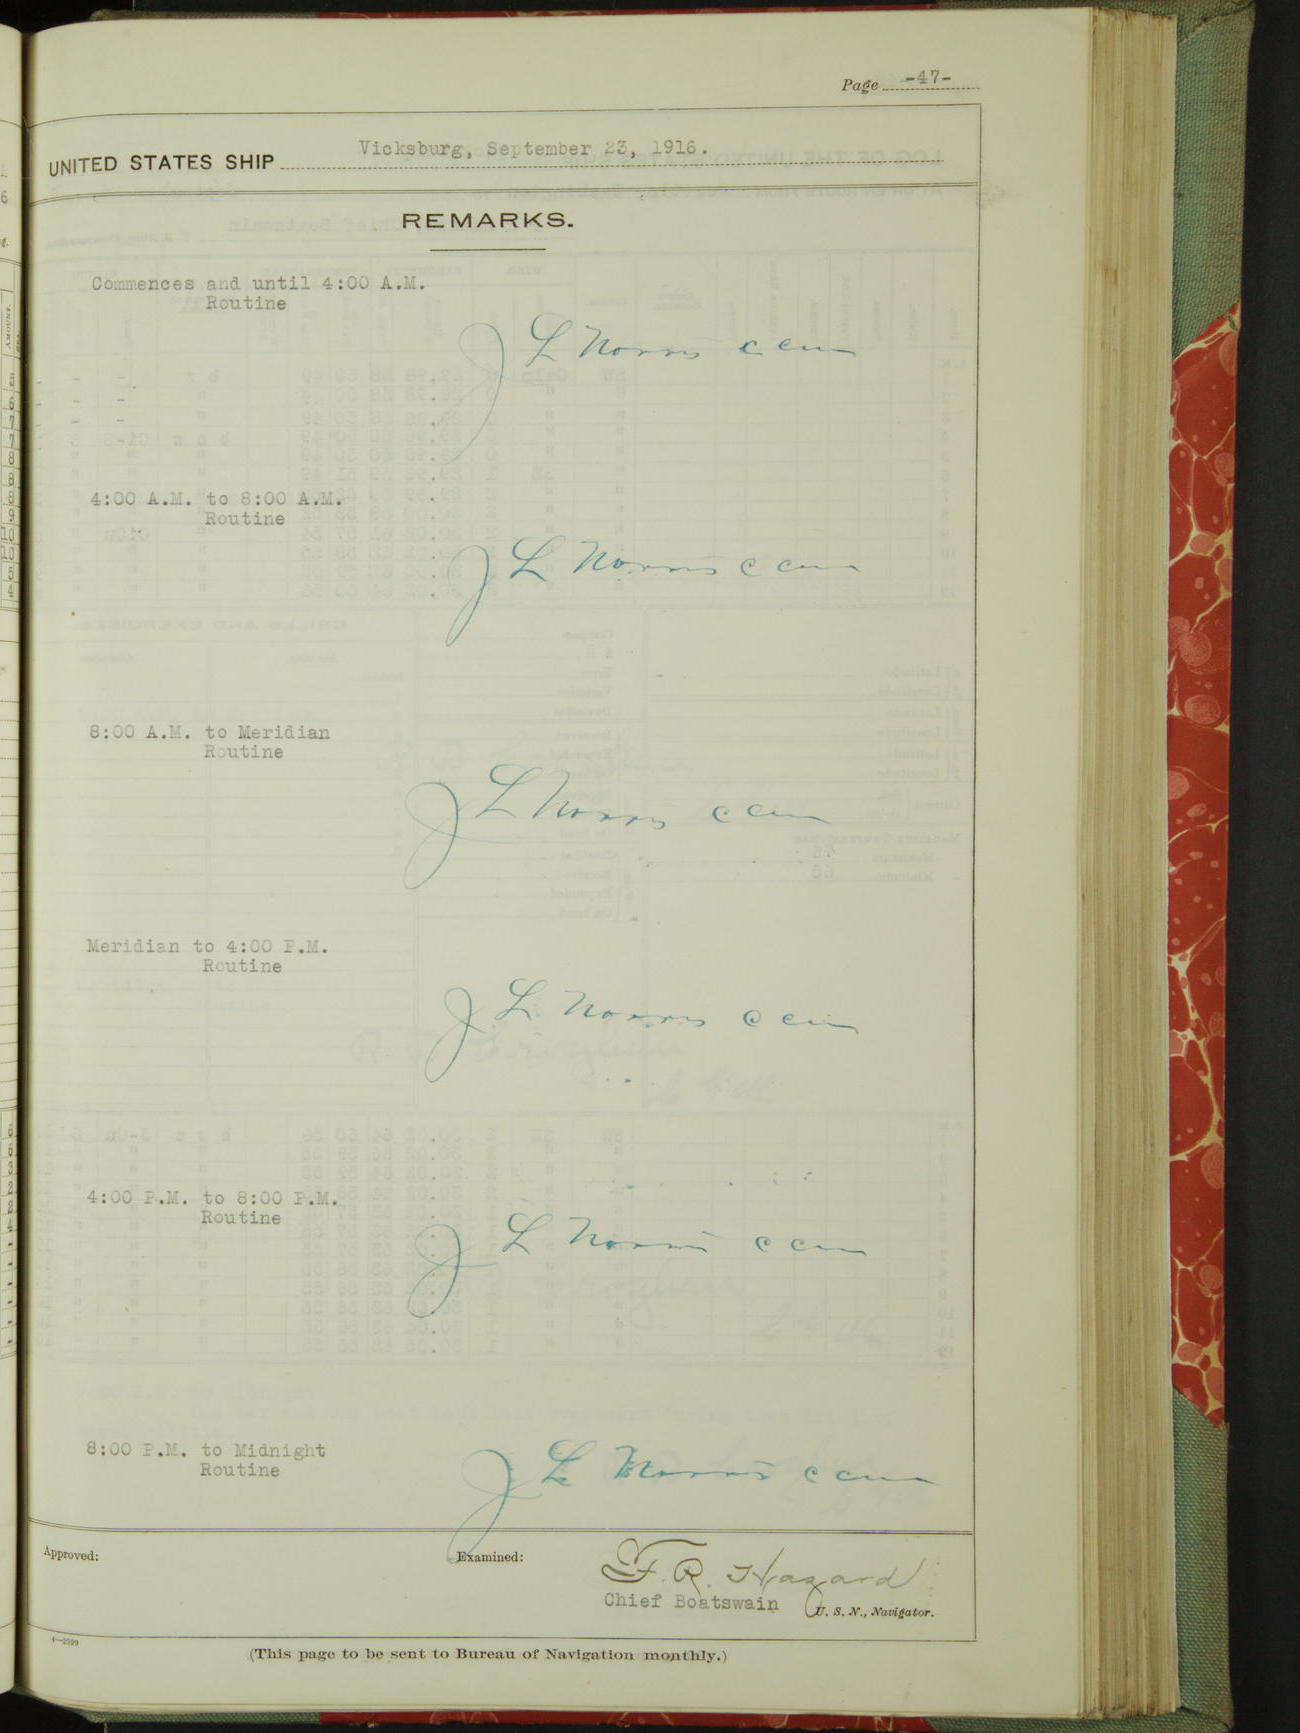 Page -47-
UNITED STATES SHIP Vicksburg, September 23, 1916.
REMARKS.
Commences and until 4:00 A.M.
Routine
J L Norris c cm
4:00 A.M. to 8:00 A.M.
Routine
J L Norris c cm
8:00 A.M. to Meridian
Routine
J L Norris c cm
Meridian to 4:00 P.M.
Routine
J L Norris c cm
4:00 P.M. to 8:00 P.M.
Routine
J L Norris c cm
8:00 P.M. to Midnight
Routine
J L Norris c cm
Approved: Examined: F. R. Hazard
Chief Boatswain U. S. N., Navigator.
(This page to be sent to Bureau of Navigation monthly.)